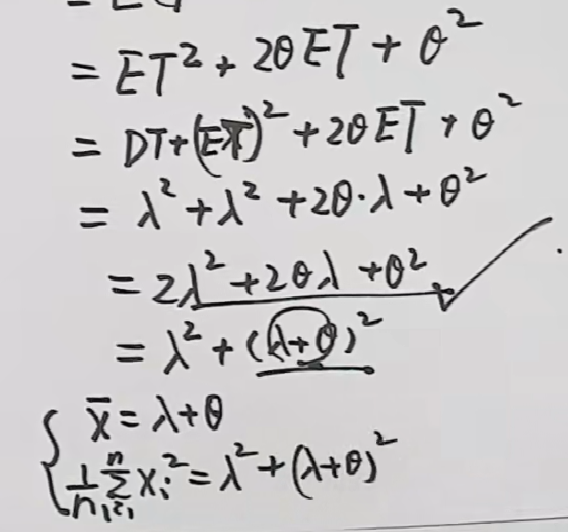 = ET² + 2θET + θ²
= DT+(ET)² + 2θET + θ²
= λ² + λ² + 2θ·λ + θ²
= 2λ² + 2θλ + θ²
= λ² + (λ+θ)²
{ x̄ = λ+θ
1/n ∑ᵢ₌₁ⁿ xᵢ² = λ² + (λ+θ)²